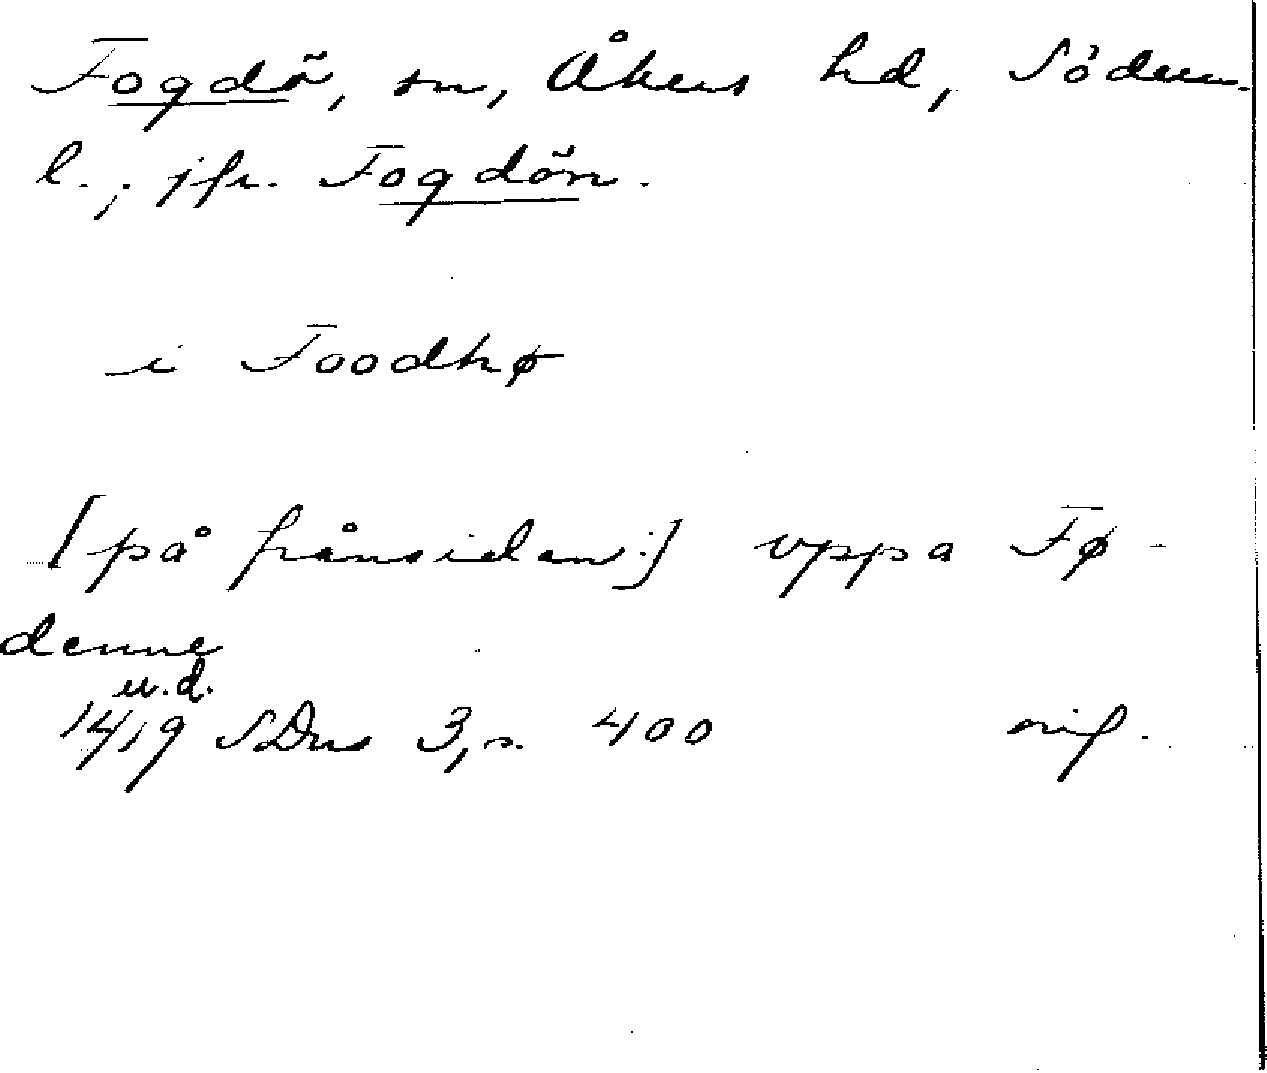 Fogdö, sn, Åkers hd, Söderm.
l.; jfr. Fogdön.
i Foodhø
[på frånsidan:] vppa Fø-
denne
u.d.
1419 SDns 3, s. 400 orig.